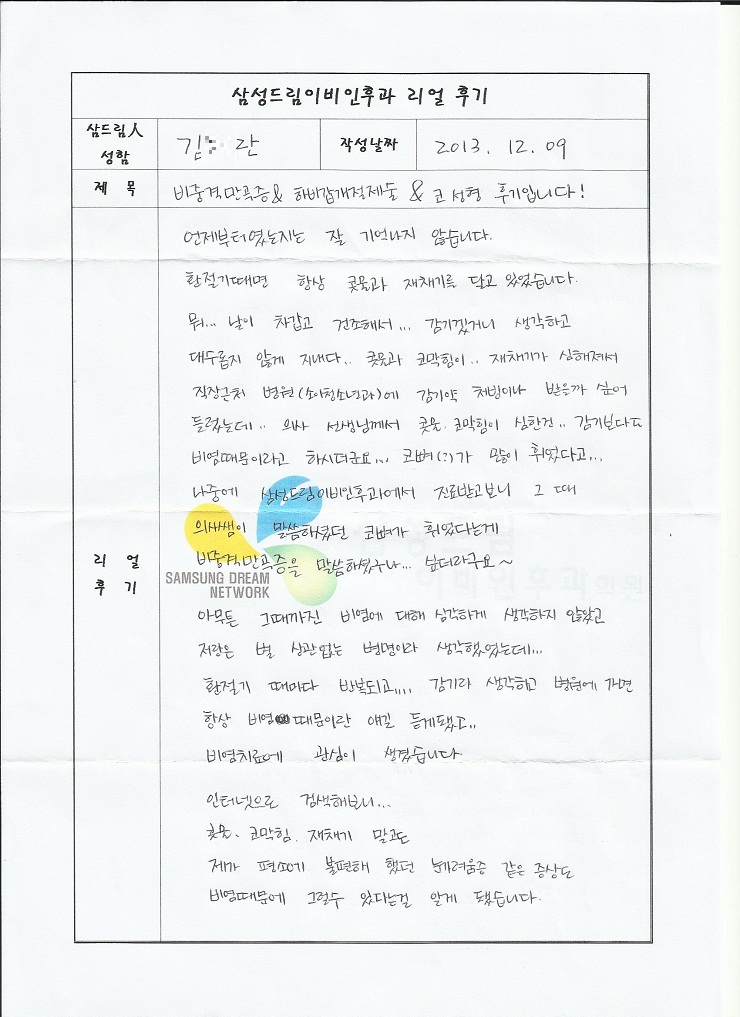 삼성드림이비인후과 리얼 후기
삼드림人 성함
김 란
작성날짜
2013. 12. 09
제 목
비중격만곡증& 하비갑개절제술 & 코 성형 후기입니다!
언제부터였는지는 잘 기억나지 않습니다.
환절기때면 항상 콧물과 재채기를 달고 있었습니다.
뭐... 날이 차갑고 건조해서... 감기겠거니 생각하고
대수롭지 않게 지내다.. 콧물과 코막힘이.. 재채기가 심해져서
직장근처 병원(소아청소년과)에 감기약 처방이나 받을까 싶어
들렸는데.. 의사 선생님께서 콧물. 코막힘이 심한건.. 감기보다도
비염때문이라고 하시더군요... 코뼈(?)가 많이 휘었다고...
나중에 삼성드림이비인후과에서 진료받고보니 그 때
의사쌤이 말씀하셨던 코뼈가 휘었다는게
비중격만곡증을 말씀하셨구나... 싶더라구요~
SAMSUNG DREAM
NETWORK
이비인후과의원
리 얼
후 기
아무튼 그때까진 비염에 대해 심각하게 생각하지 않았고
저랑은 별 상관없는 병명이라 생각했었는데...
환절기 때마다 반복되고.... 감기라 생각하고 병원에 가면
항상 비염 때문이란 얘길 듣게됐고..
비염치료에 관심이 생겼습니다.
인터넷으로 검색해보니...
콧물. 코막힘. 재채기 말고도
제가 평소에 불편해 했던 눈가려움증 같은 증상도
비염때문에 그럴수 있다는걸 알게 됐습니다.